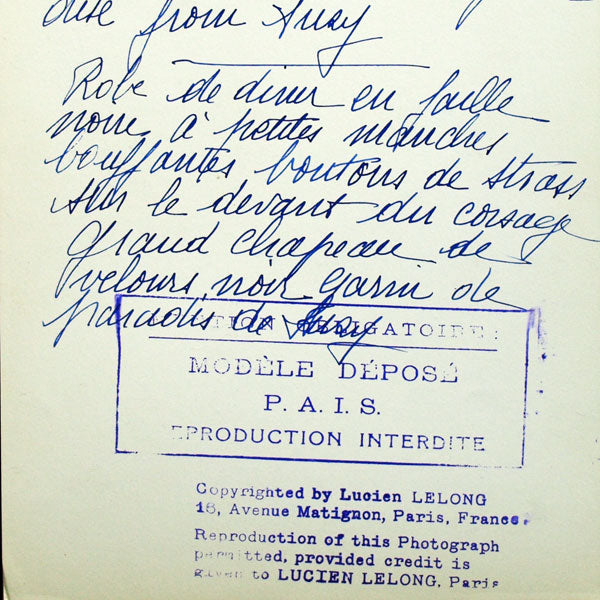 from Suzy
Robe de diner en faille
noire à petites manches
bouffantes boutons de strass
sur le devant du corsage
grand chapeau de
velours noir garni de
paradis de Suzy
MENTION OBLIGATOIRE :
MODÈLE DÉPOSÉ
P. A. I. S.
REPRODUCTION INTERDITE
Copyrighted by Lucien LELONG
16, Avenue Matignon, Paris, France.
Reproduction of this Photograph
permitted, provided credit is
given to LUCIEN LELONG. Paris